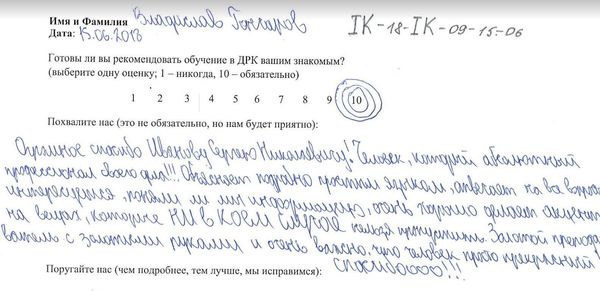 Имя и Фамилия Владислав Гончаров
IK-18-IK-09-15-06
Дата: 15.06.2018
Готовы ли вы рекомендовать обучение в ДРК вашим знакомым?
(выберите одну оценку; 1 – никогда, 10 – обязательно)
1 2 3 4 5 6 7 8 9 10
Похвалите нас (это не обязательно, но нам будет приятно):
Огромное спасибо Иванову Сергею Николаевичу! Человек, который абсолютный
профессионал своего дела!!! Объясняет подробно простым языком, отвечает на все вопросы
интересуется, поняли ли мы информацию, очень хорошо делает акценты
на вещах, которые НИ В КОЕМ СЛУЧАЕ нельзя пропустить. Золотой препода-
ватель с золотыми руками и очень важно, что человек просто прекрасный!
СПАСИБОООО!!!
Поругайте нас (чем подробнее, тем лучше, мы исправимся):